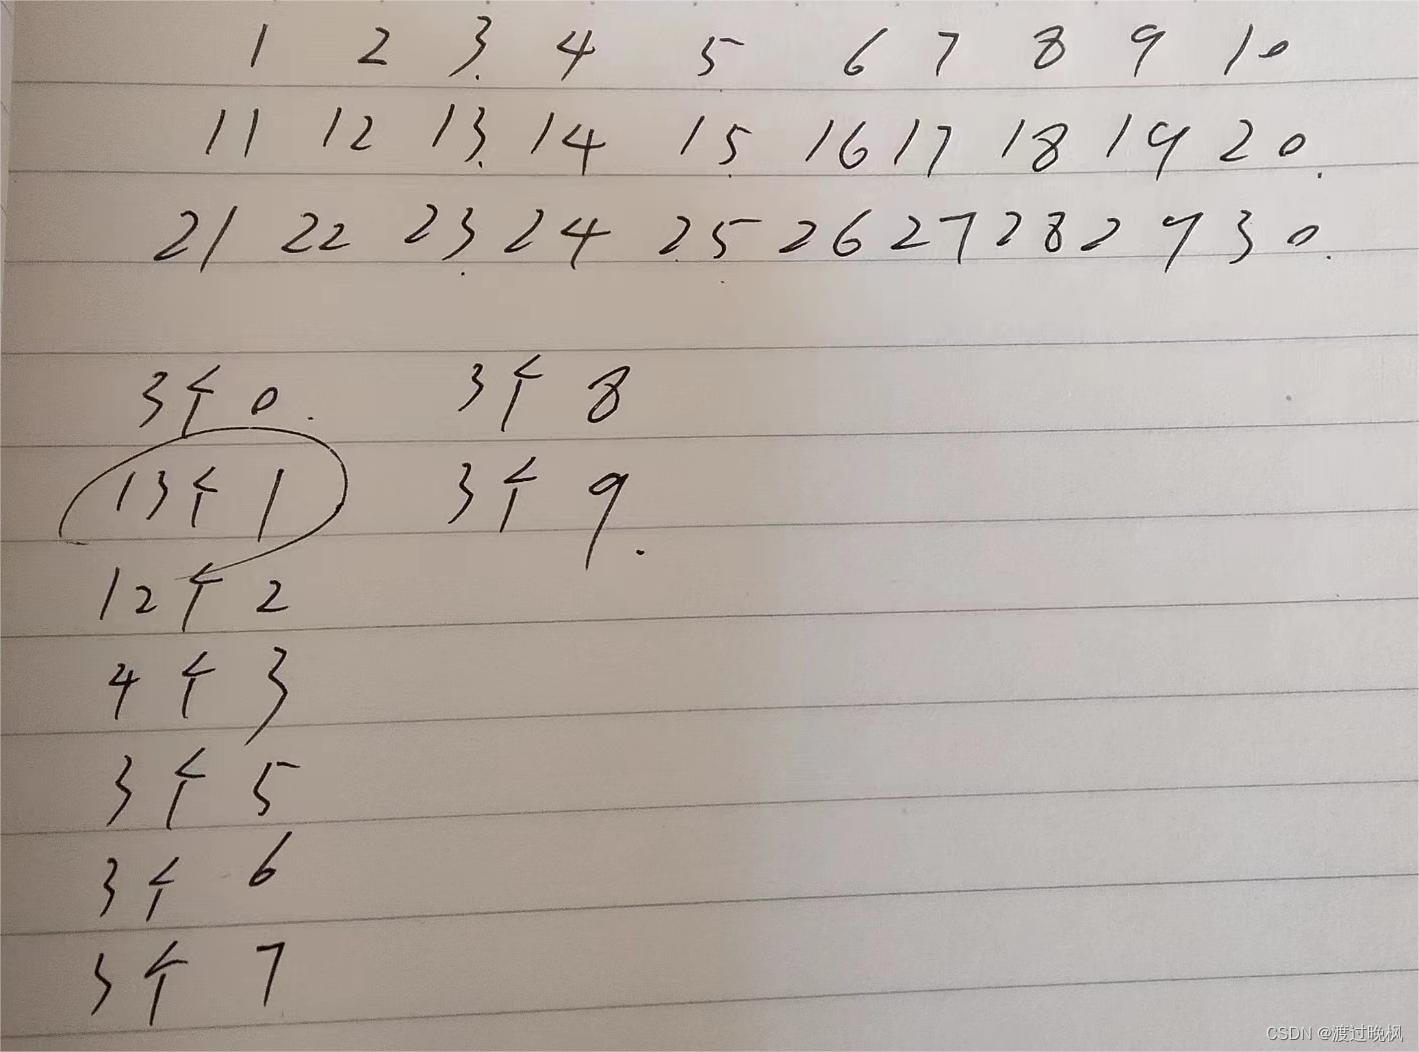 1 2 3 4 5 6 7 8 9 10
11 12 13 14 15 16 17 18 19 20
21 22 23 24 25 26 27 28 29 30
3个0 3个8
13个1 3个9
12个2
4个3
3个5
3个6
3个7
CSDN @渡过晚枫